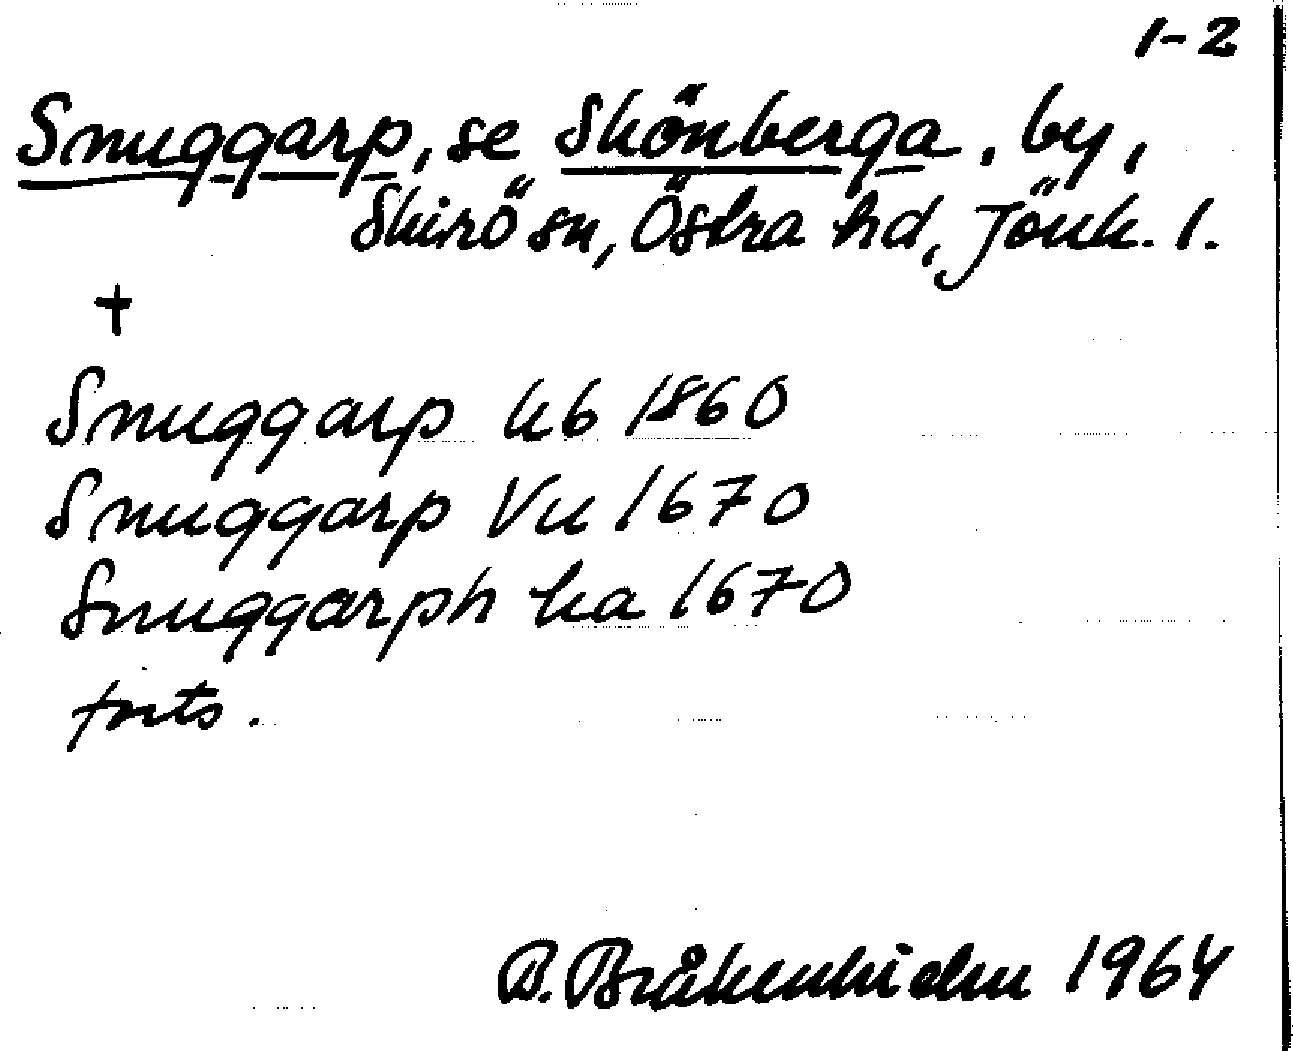 1-2
Snuggarp, se Skönberga, by,
Skirö sn, Östra hd, Jönk. l.
†
Snuggarp kb 1860
Snuggarp Vu 1670
Snuggarph ka 1670
forts.
B. Bråkenhielm 1964